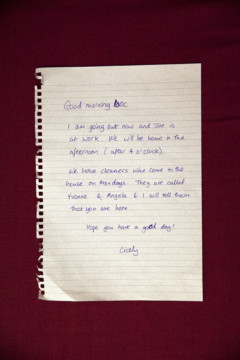 Good morning
I am going out now and Joe is
at work. We will be home in the
afternoon (after 4 o'clock).
We have cleaners who come to the
house on Mondays. They are called
Yvonne & Angela & I will tell them
that you are here.
Hope you have a good day!
Cicely